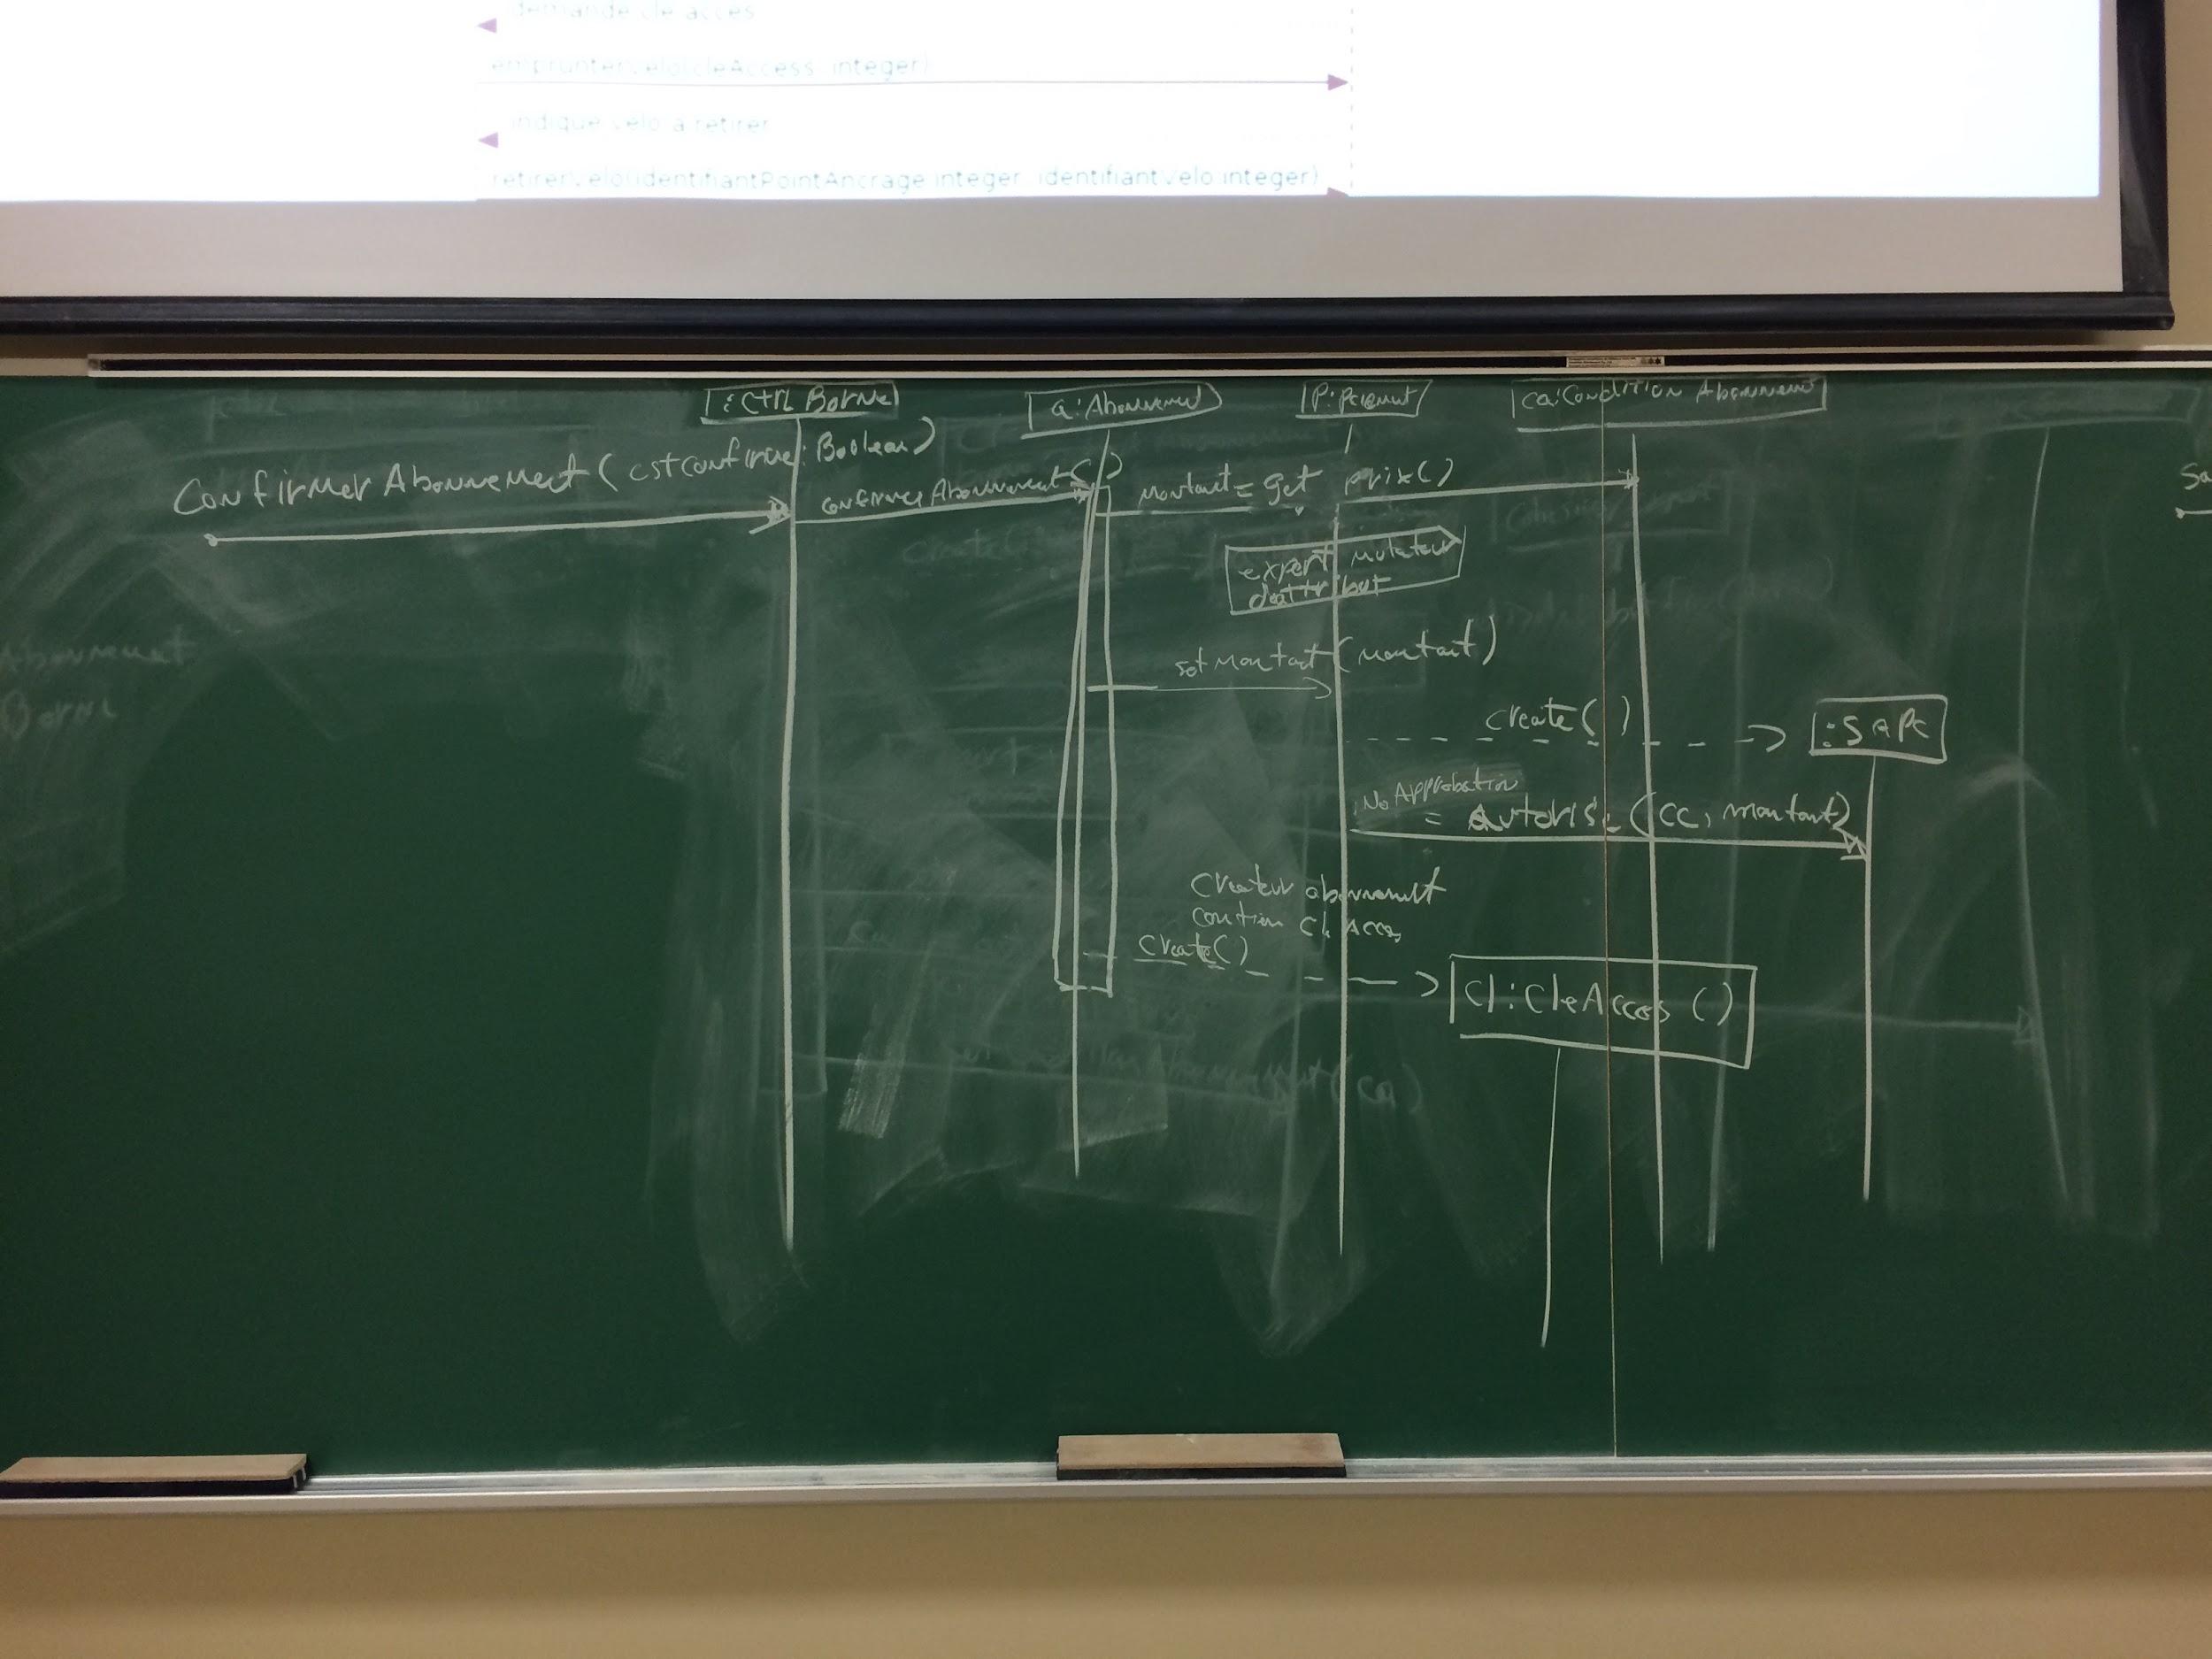 demande cle acces
emprunterVelo(cleAccess: integer)
indique velo a retirer
retirerVelo(identifiantPointAncrage:integer, identifiantVelo:integer)
:Ctrl Borne
a:Abonnement
P:Paiement
ca:Condition Abonnement
Confirmer Abonnement (estConfirme: Boolean)
confirmer Abonnement()
montant = get prix()
expert mutateur
d'attribut
set montant (montant)
create()
:SAPC
No Approbation
= Autoris (cc, montant)
Createur abonnement
contien Cle Acces
create()
cl:CleAcces ()
Abonnement
Borne
(ca)